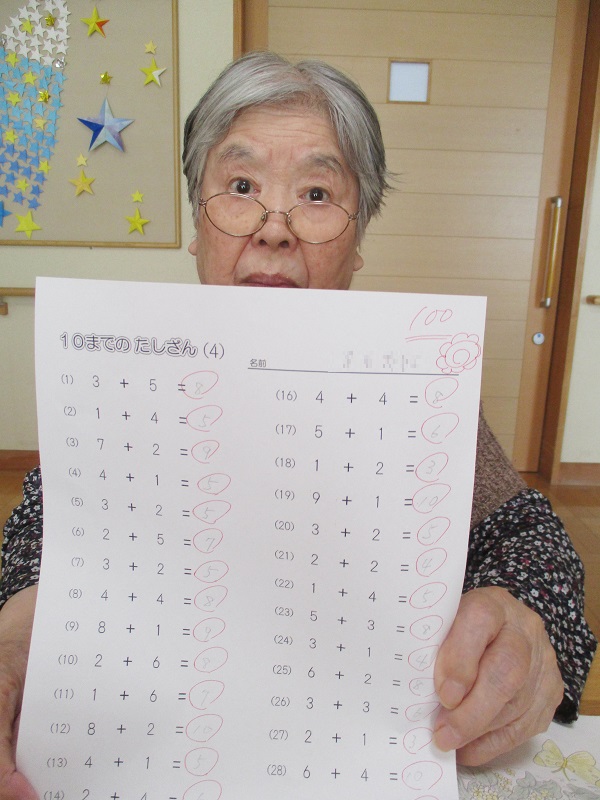 100
10までの たしざん (4)
名前
(1) 3 + 5 = 8
(2) 1 + 4 = 5
(3) 7 + 2 = 9
(4) 4 + 1 = 5
(5) 3 + 2 = 5
(6) 2 + 5 = 7
(7) 3 + 2 = 5
(8) 4 + 4 = 8
(9) 8 + 1 = 9
(10) 2 + 6 = 8
(11) 1 + 6 = 7
(12) 8 + 2 = 10
(13) 4 + 1 = 5
(14) 2 + 4 =
(16) 4 + 4 = 8
(17) 5 + 1 = 6
(18) 1 + 2 = 3
(19) 9 + 1 = 10
(20) 3 + 2 = 5
(21) 2 + 2 = 4
(22) 1 + 4 = 5
(23) 5 + 3 = 8
(24) 3 + 1 = 4
(25) 6 + 2 = 8
(26) 3 + 3 = 6
(27) 2 + 1 = 3
(28) 6 + 4 = 10